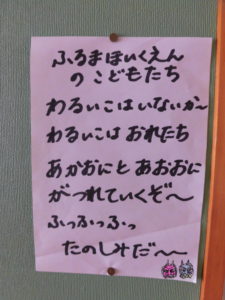 ふるまほいくえん
のこどもたち
わるいこはいないか〜
わるいこはおれたち
あかおにとあおおに
がつれていくぞ〜
ふっふっふっ
たのしみだ〜